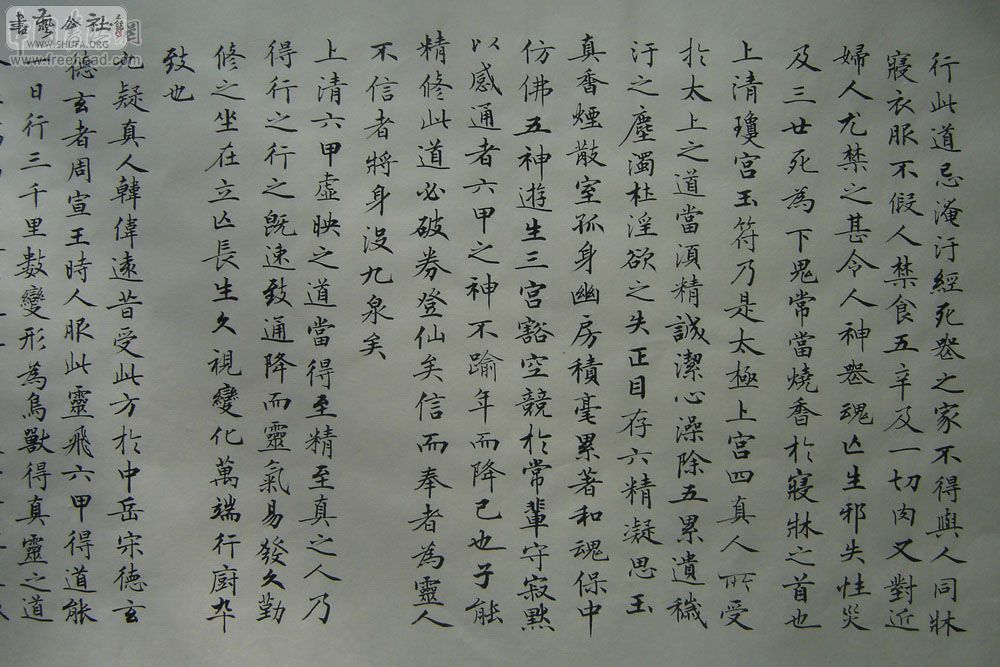 書藝公社
WWW.SHUFA.ORG
www.freehead.com
行此道忌淹汙經死喪之家不得與人同牀
寢衣服不假人禁食五辛及一切肉又對近
婦人尤禁之甚令人神喪魂亡生邪失性災
及三世死為下鬼常當燒香於寢牀之首也
上清瓊宮玉符乃是太極上宮四真人所受
於太上之道當須精誠潔心澡除五累遺穢
汙之塵濁杜淫欲之失正目存六精凝思玉
真香煙散室孤身幽房積毫累著和魂保中
仿佛五神遊生三宮豁空競於常輩守寂默
以感通者六甲之神不踰年而降已也子能
精修此道必破券登仙矣信而奉者為靈人
不信者將身沒九泉矣
上清六甲虛映之道當得至精至真之人乃
得行之行之既速致通降而靈氣易發久勤
修之坐在立亡長生久視變化萬端行廚卒
致也
九疑真人韓偉遠昔受此方於中岳宋德玄
德玄者周宣王時人服此靈飛六甲得道能
日行三千里數變形為鳥獸得真靈之道